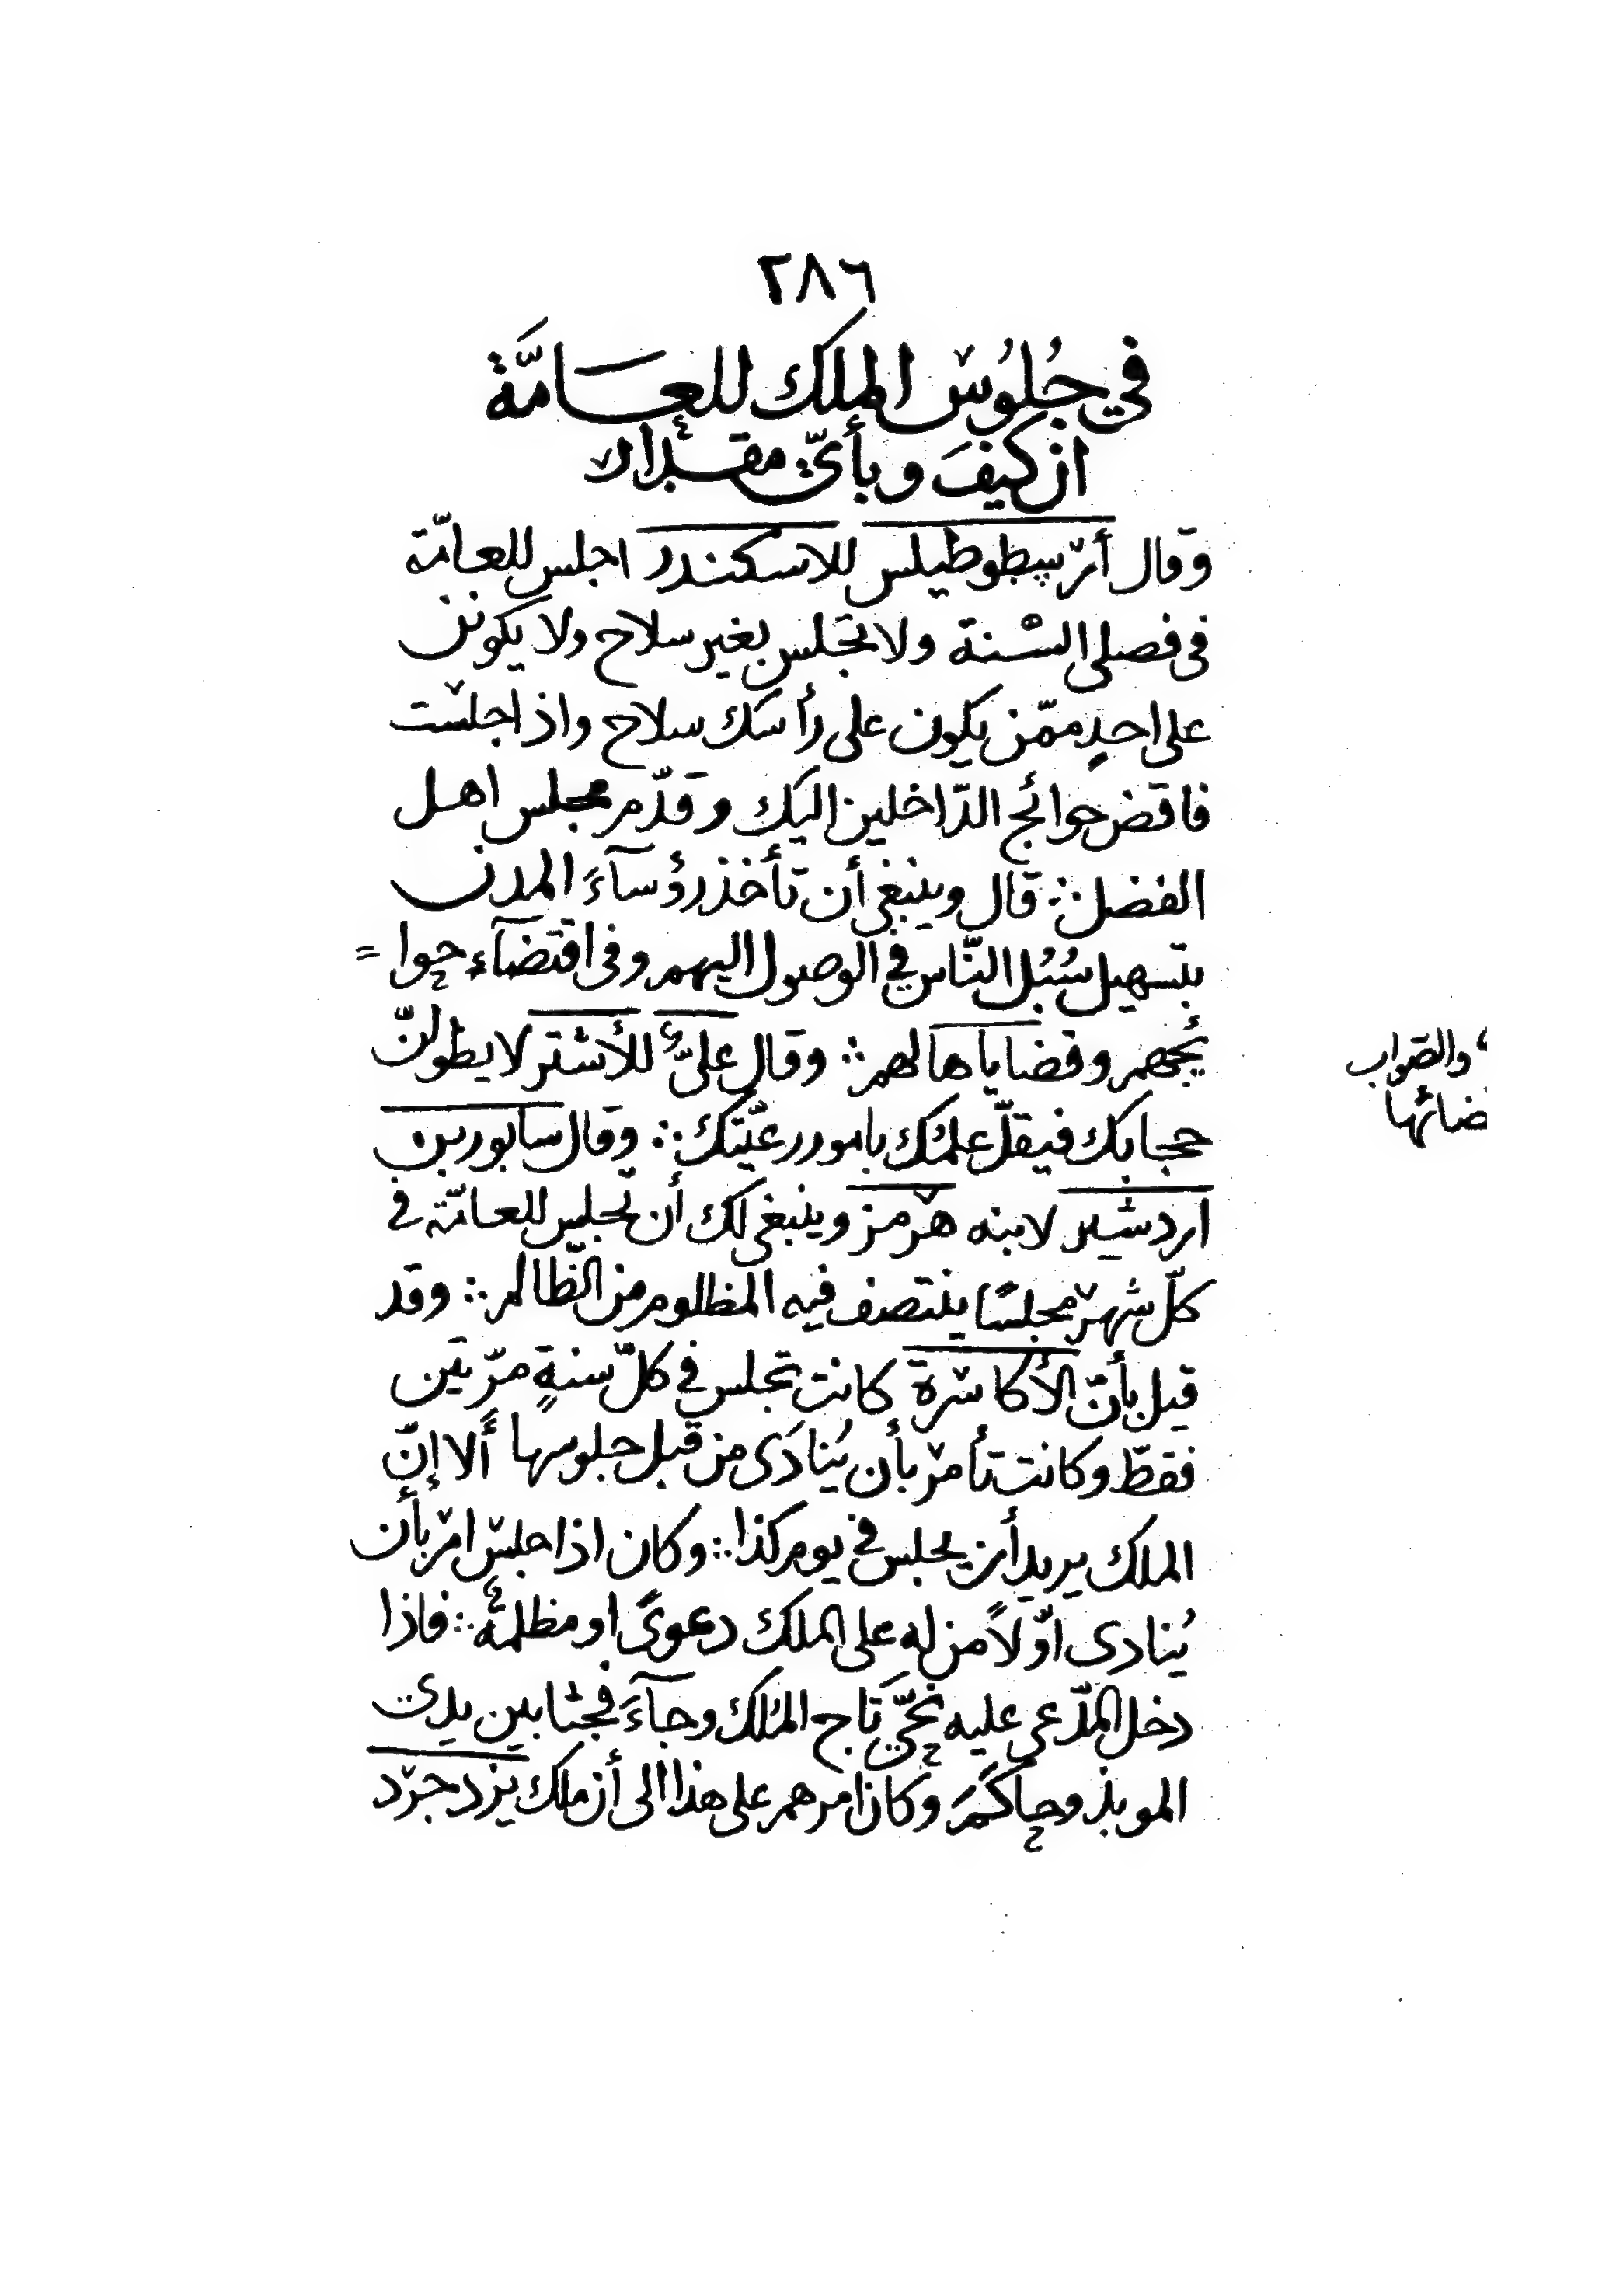 ٢٨٦
في جُلُوس الملك للعَامَّة
ان كيفَ وبأيّ مقدار
وقال أرسطوطيلس للاسكندر اجلس للعامّة
فى فصلى السّنة ولا تجلس بغير سلاح ولا يكونن
على احدٍ ممّن يكون على رأسك سلاح واذا جلست
فاقض حوائج الدّاخلين اليك وقدّم مجلس اهل
الفضل ؞ قال وينبغى أن تأخذ رؤسآءَ المدن
بتسهيل سُبُل النّاس في الوصول اليهم وفى اقتضآء حوا =
ئجهم وقضاياها لهم ؞ وقال علىّ للأشتر لا يطولنّ
حجابك فيقلّ علمك بامور رعيّتك ؞ وقال سابور بن
اردشير لابنه هرمز وينبغى لك أن تجلس للعامّة فى
كلّ شهر مجلسًا ينتصف فيه المظلوم من الظّالم ؞ وقد
قيل بأنّ الأكاسرة كانت تجلس في كلّ سنةٍ مرّتين
فقطّ وكانت تأمر بأن يُنادَى من قبل جلوسها ألا إنّ
الملك يريد أن يجلس في يوم كذا ؞ وكان اذا جلس امر بأن
يُنادى اوّلاً من له على الملك دعوىً او مظلمة ؞ فاذا
دخل المدّعى عليه نحّي تاج الملك وجآءَ فجثا بين يدى
الموبذ وحاكمَ وكان امرهم على هذا الى أن ملك يزدجرد
والصّواب
ضائها